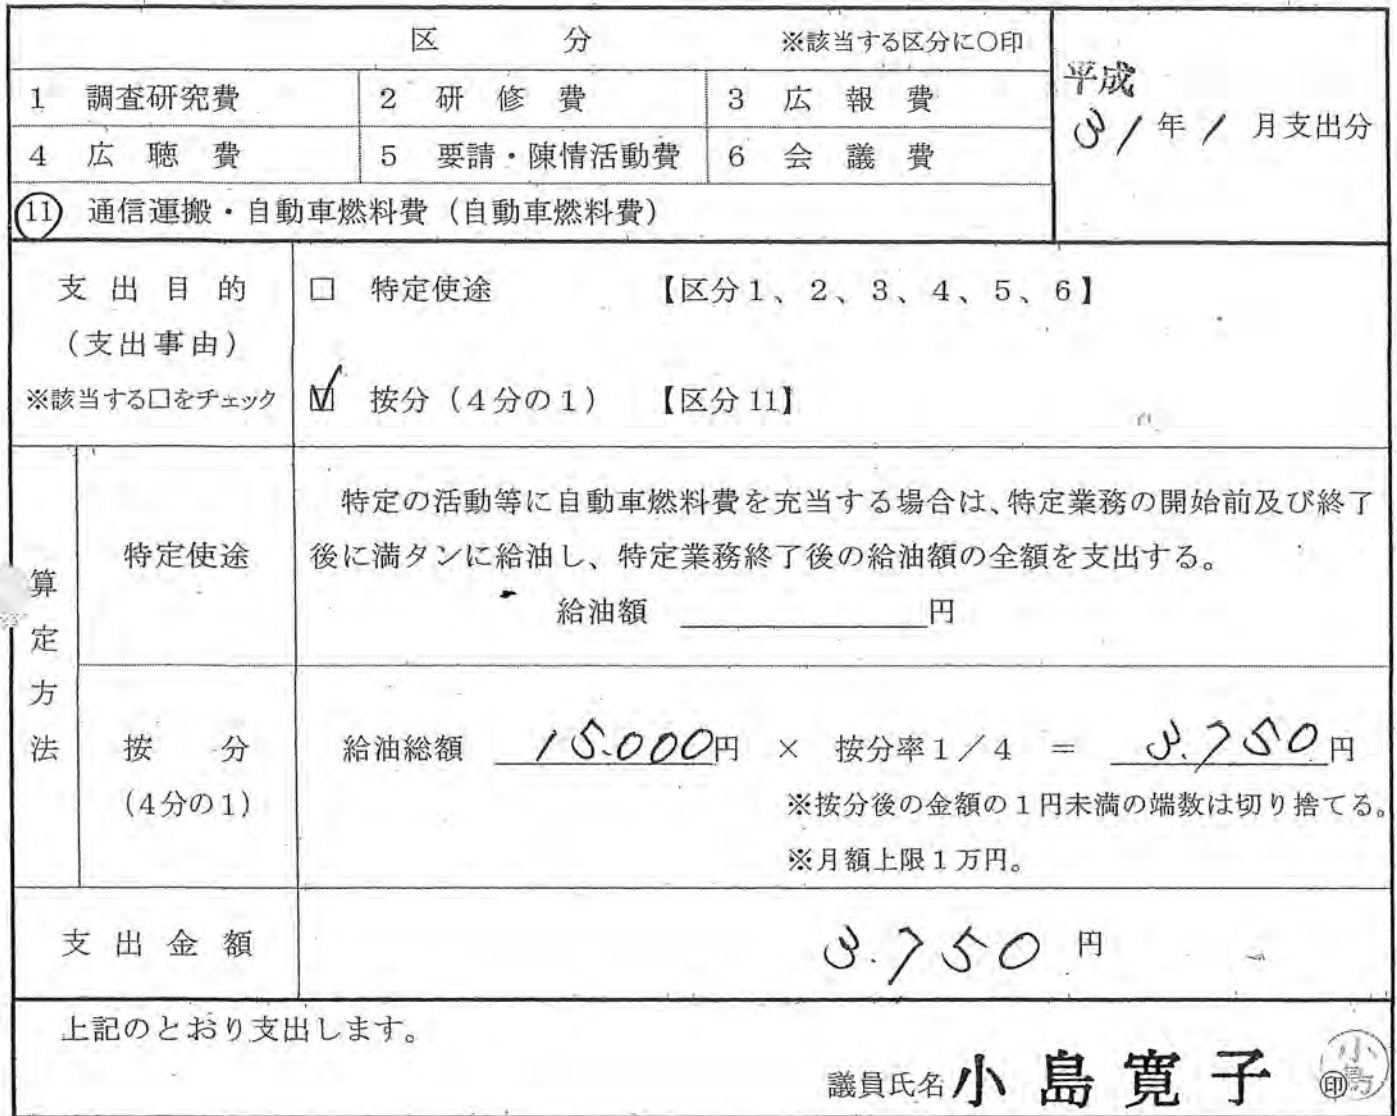 区 分 ※該当する区分に〇印
平成
31年1月支出分
1 調査研究費 2 研修費 3 広報費
4 広聴費 5 要請・陳情活動費 6 会議費
⑪ 通信運搬・自動車燃料費（自動車燃料費）
支出目的
（支出事由）
※該当する口をチェック
□ 特定使途 【区分1、2、3、4、5、6】
☑ 按分（4分の1） 【区分11】
算定方法
特定使途
特定の活動等に自動車燃料費を充当する場合は、特定業務の開始前及び終了
後に満タンに給油し、特定業務終了後の給油額の全額を支出する。
給油額 円
按分
（4分の1）
給油総額 15.000円 × 按分率1／4 ＝ 3.750円
※按分後の金額の1円未満の端数は切り捨てる。
※月額上限1万円。
支出金額 3.750円
上記のとおり支出します。
議員氏名 小島寛子 ㊞
小島